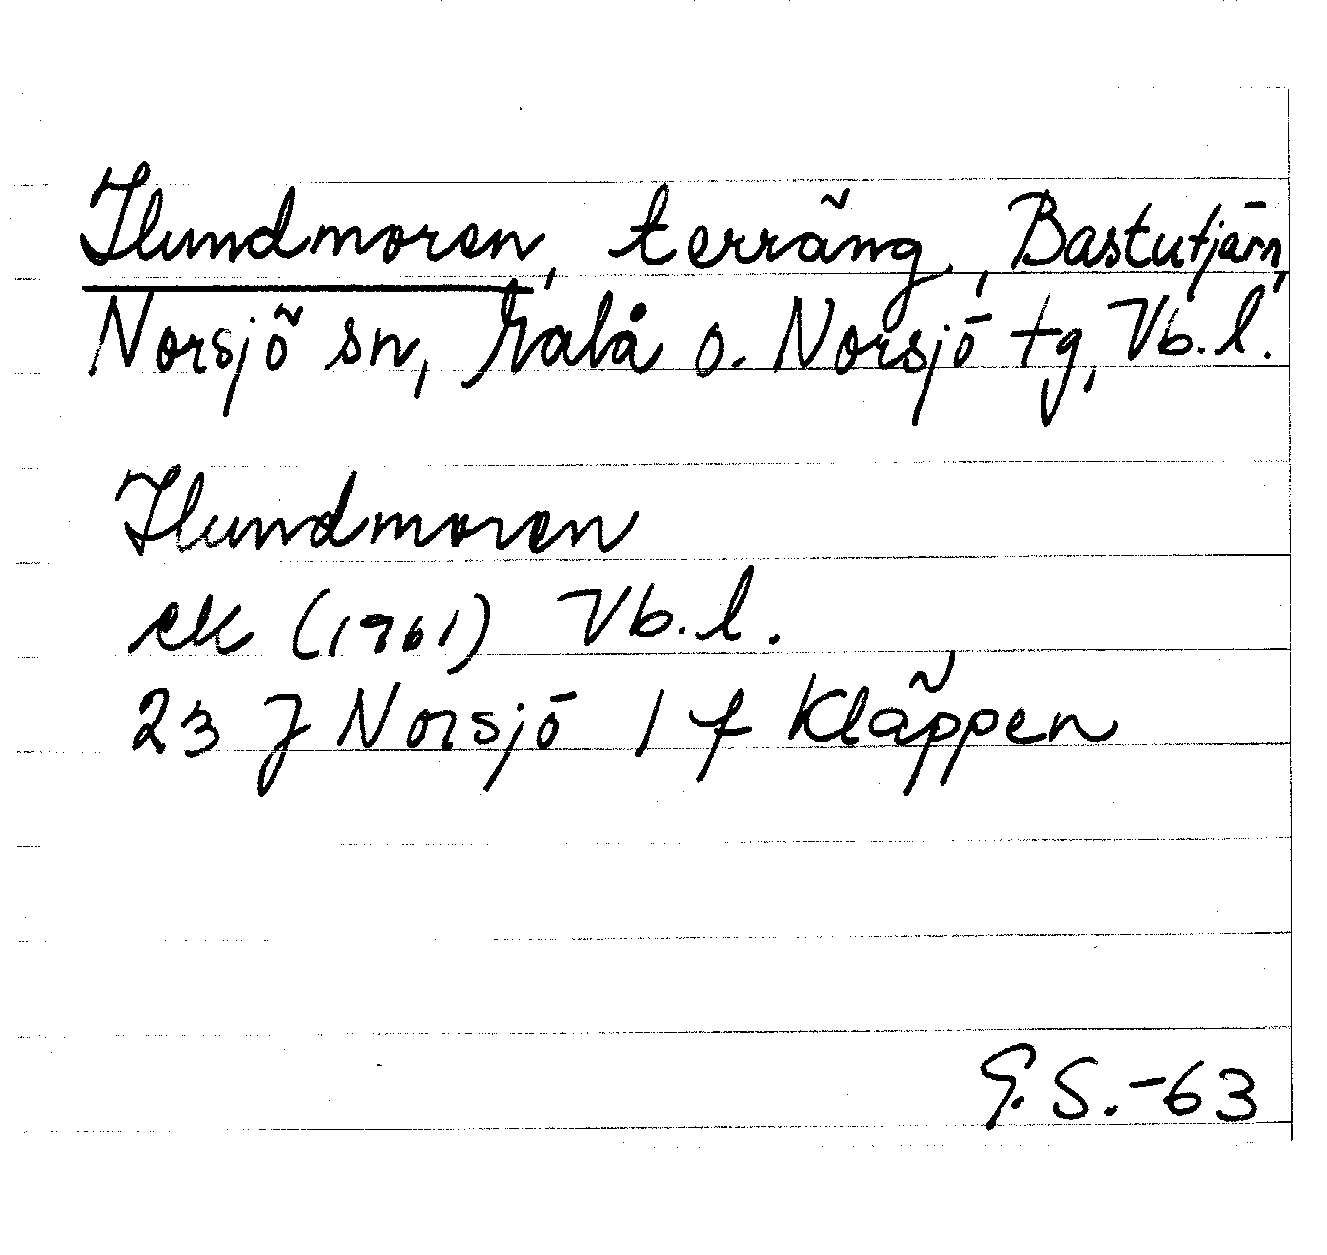 Hundmoren, terräng, Bastutjärn,
Norsjö sn, Malå o. Norsjö tg, Vb. l.
Hundmoren
ek (1961) Vb. l.
23 J Norsjö 1 f Kläppen
G. S. -63